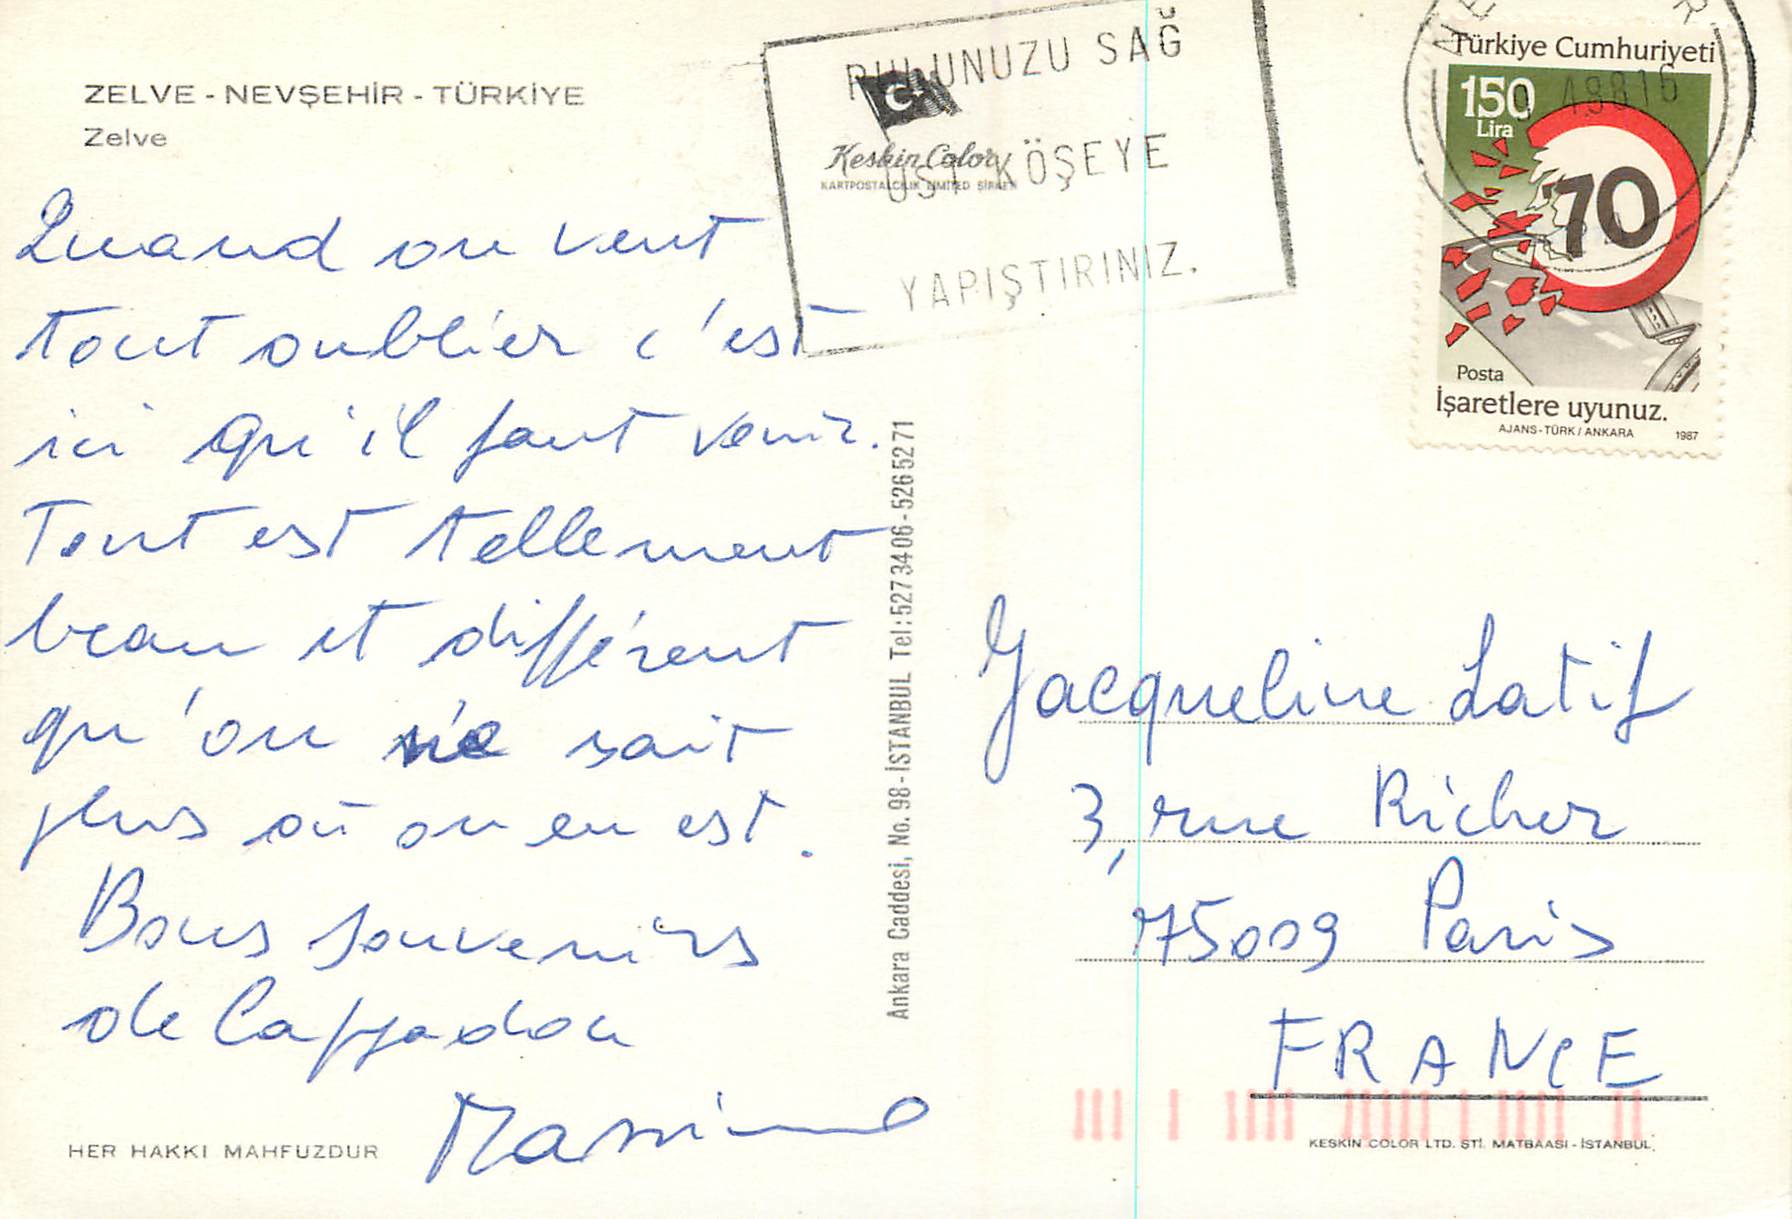 ZELVE - NEVŞEHİR - TÜRKİYE
Zelve
Quand on veut
tout oublier c'est
ici qu'il faut venir.
Tout est tellement
beau et différent
qu'on ne sait
plus où on en est.
Bons souvenirs
de Cappadoce
HER HAKKI MAHFUZDUR
PULUNUZU SAĞ
ÜST KÖŞEYE
YAPIŞTIRINIZ.
Keskin Color
KARTPOSTALCILIK LİMİTED ŞİRKETİ
Ankara Caddesi, No. 98 - İSTANBUL Tel: 527 34 06 - 526 52 71
Türkiye Cumhuriyeti
150
Lira
70
Posta
İşaretlere uyunuz.
AJANS-TÜRK / ANKARA 1987
Jacqueline Latif
3, rue Richer
75009 Paris
FRANCE
KESKIN COLOR LTD. ŞTİ. MATBAASI - İSTANBUL